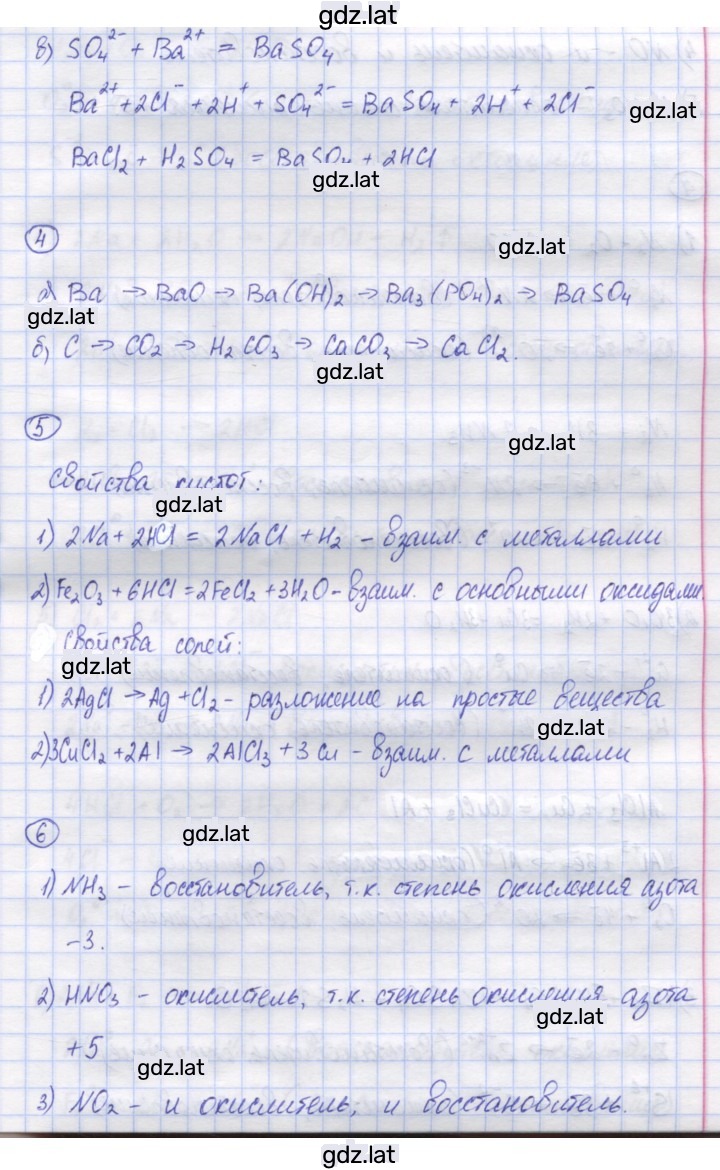 gdz.lat
в) SO₄²⁻ + Ba²⁺ = BaSO₄
Ba²⁺ + 2Cl⁻ + 2H⁺ + SO₄²⁻ = BaSO₄ + 2H⁺ + 2Cl⁻
gdz.lat
BaCl₂ + H₂SO₄ = BaSO₄ + 2HCl
gdz.lat
4
gdz.lat
а) Ba → BaO → Ba(OH)₂ → Ba₃(PO₄)₂ → BaSO₄
gdz.lat
б) C → CO₂ → H₂CO₃ → CaCO₃ → CaCl₂.
gdz.lat
5
gdz.lat
Свойства кислот:
gdz.lat
1) 2Na + 2HCl = 2NaCl + H₂ - взаим. с металлами
2) Fe₂O₃ + 6HCl = 2FeCl₂ + 3H₂O - взаим. с основными оксидами.
Свойства солей:
gdz.lat
1) 2AgCl → Ag + Cl₂ - разложение на простые вещества
gdz.lat
2) 3CuCl₂ + 2Al → 2AlCl₃ + 3Cu - взаим. с металлами
6
gdz.lat
1) NH₃ - восстановитель, т.к. степень окисления азота
-3.
2) HNO₃ - окислитель, т.к. степень окисления азота
gdz.lat
+5
gdz.lat
3) NO₂ - и окислитель, и восстановитель.
gdz.lat